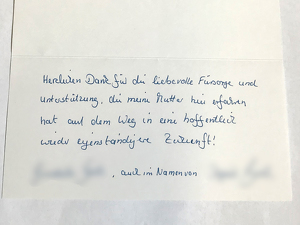 Herzlichen Dank für die liebevolle Fürsorge und
Unterstützung, die meine Mutter hier erfahren
hat auf dem Weg in eine hoffentlich
wieder eigenständigere Zukunft!
, auch im Namen von